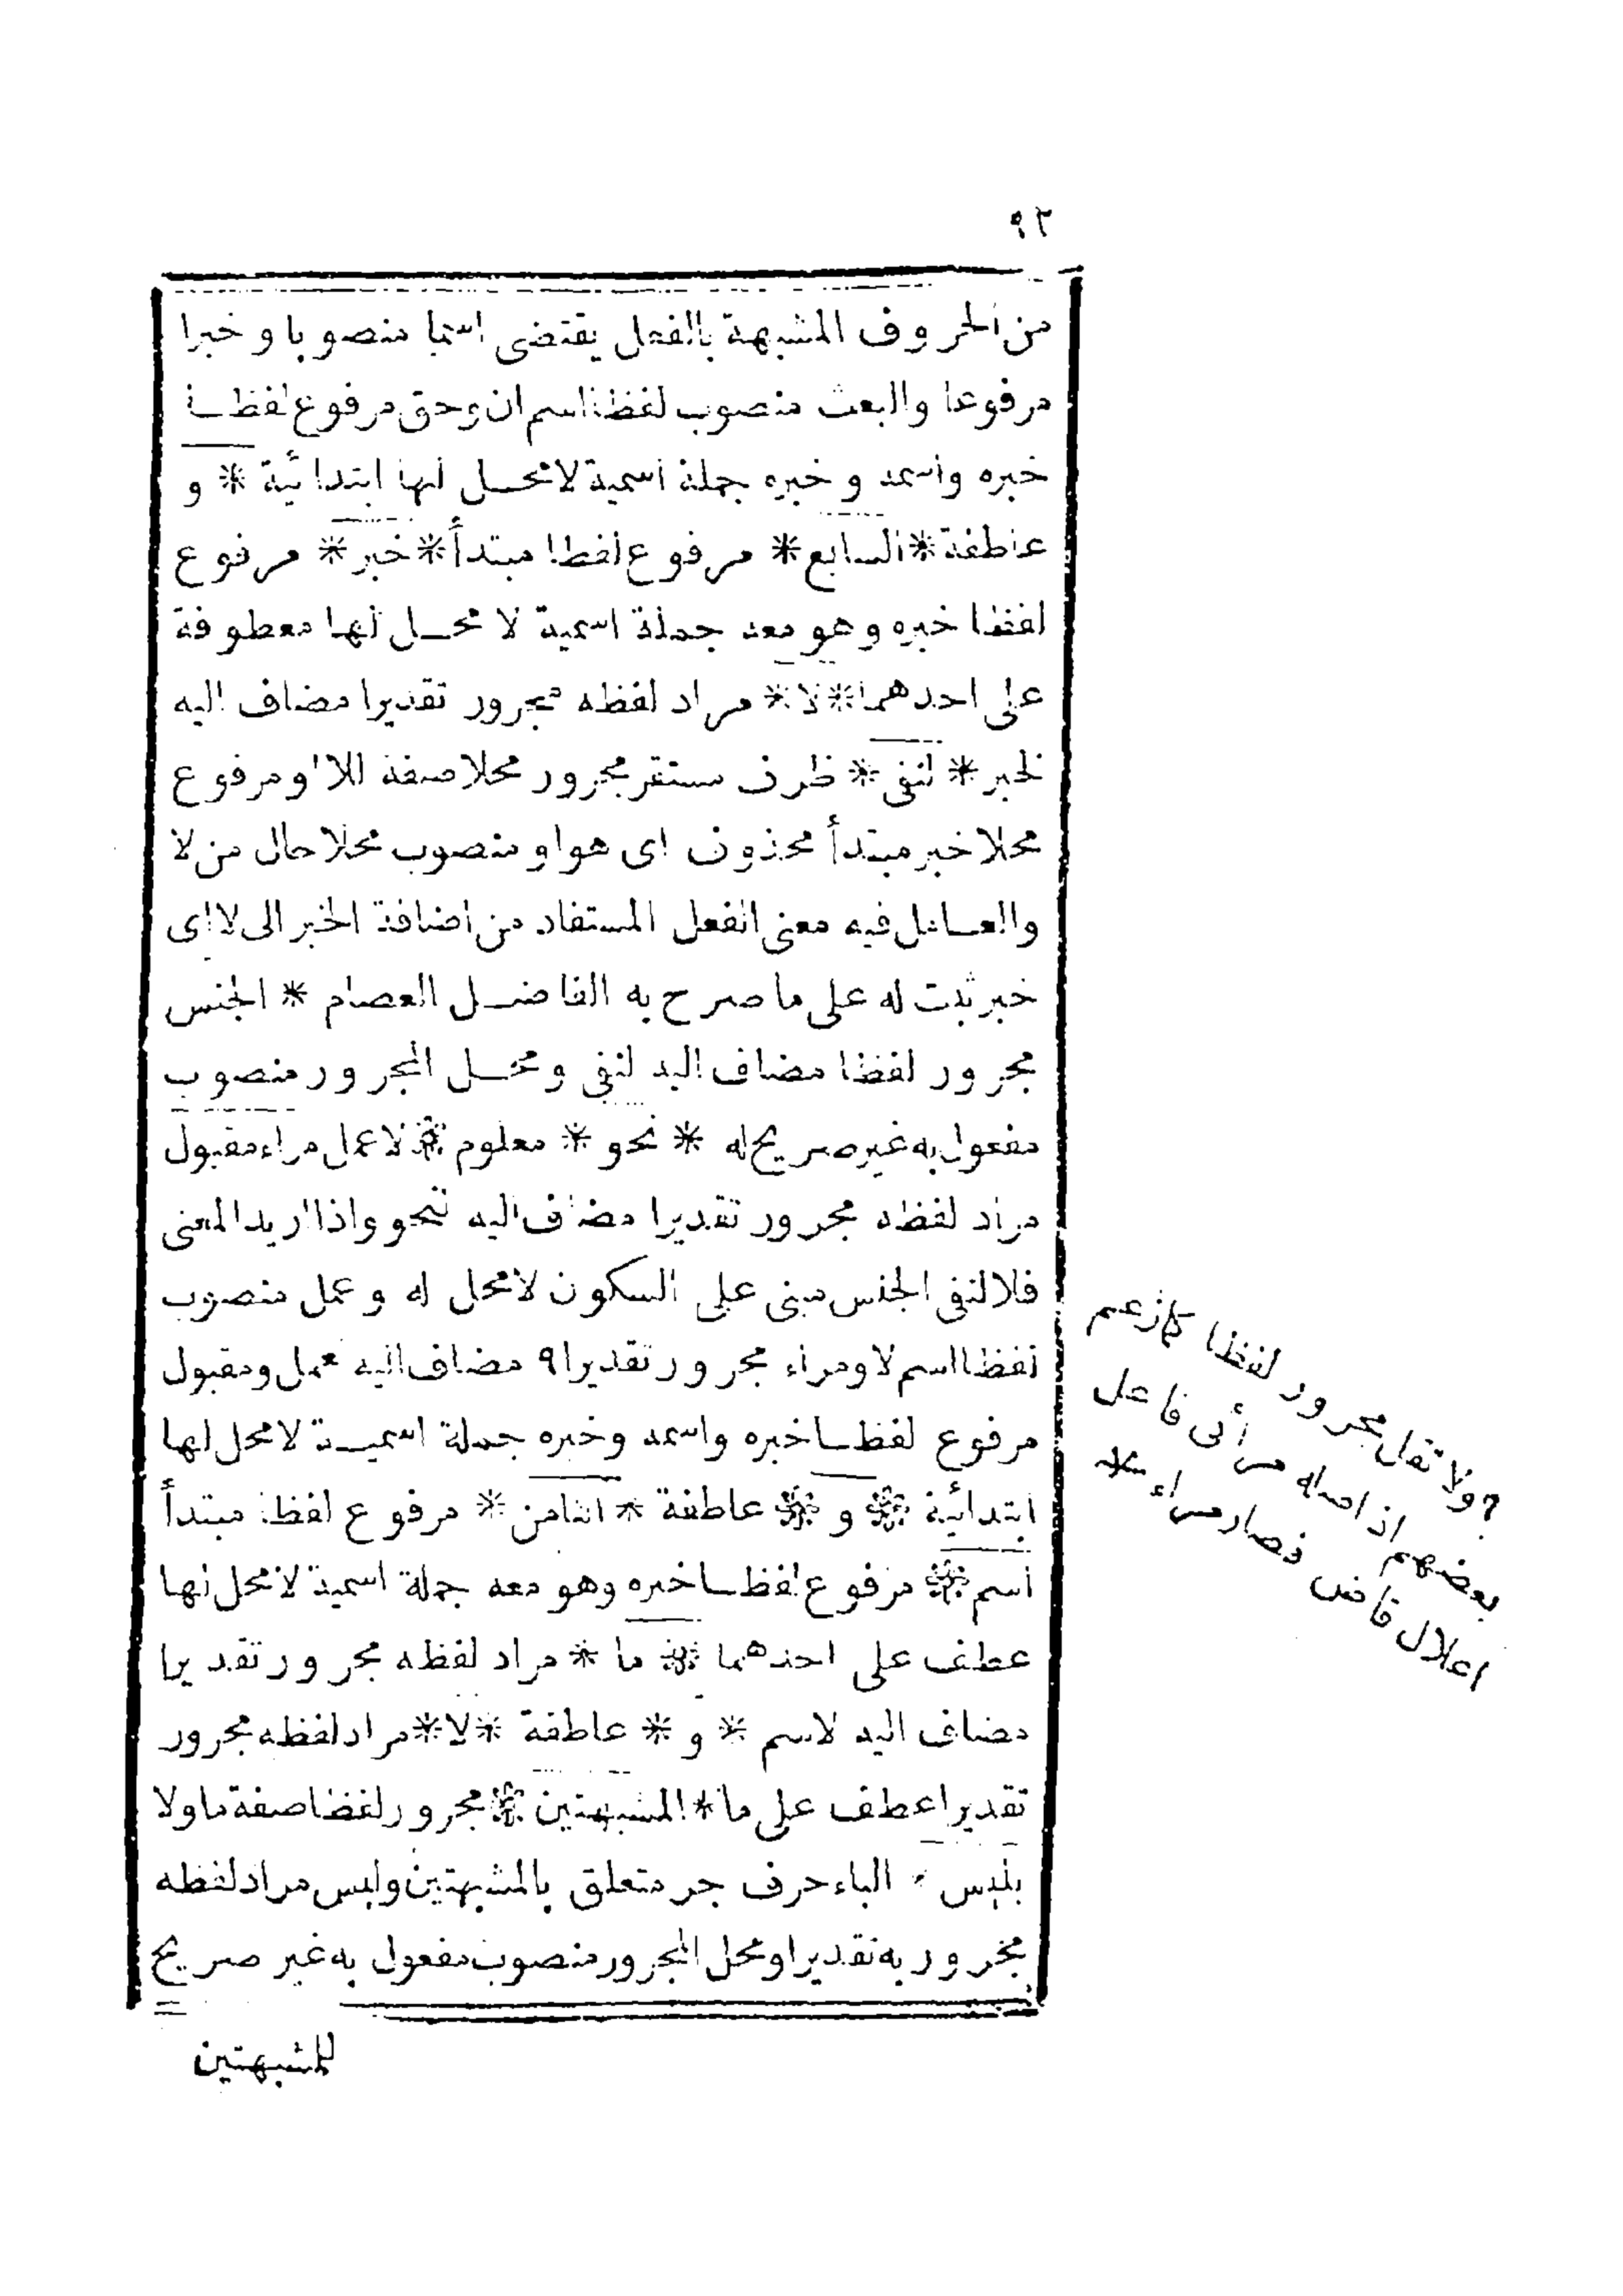 ٩٢
من الحروف المشبهة بالفعل يقتضى اسما منصوبا و خبرا
مرفوعا والبعث منصوب لفظا اسم ان وحق مرفوع لفظا
خبره واسمه و خبره جملة اسمية لا محل لها ابتدائية * و
عاطفة * السابع * مرفوع لفظا مبتدأ * خبر * مرفوع
لفظا خبره وهو معه جملة اسمية لا محل لها معطوفة
على احدهما * لا * مراد لفظه مجرور تقديرا مضاف اليه
لخبر * لنفى * ظرف مستقر مجرور محلا صفة للا او مرفوع
محلا خبر مبتدأ محذوف اى هو او منصوب محلا حال من لا
والعامل فيه معنى الفعل المستفاد من اضافة الخبر الى لا اى
خبر ثبت له على ما صرح به الفاضل العصام * الجنس
مجرور لفظا مضاف اليه لنفى و محل المجرور منصوب
مفعول به غير صريح له * نحو * معلوم * لا عمل مراء مقبول
مراد لفظه مجرور تقديرا مضاف اليه لنحو واذا اريد المعنى
فلا لنفى الجنس مبنى على السكون لا محل له و عمل منصوب
لفظا اسم لا ومراء مجرور تقديرا ٩ مضاف اليه لعمل ومقبول
مرفوع لفظا خبره واسمه وخبره جملة اسمية لا محل لها
ابتدائية * و * عاطفة * الثامن * مرفوع لفظا مبتدأ
اسم * مرفوع لفظا خبره وهو معه جملة اسمية لا محل لها
عطف على احدهما * ما * مراد لفظه مجرور تقديرا
مضاف اليه لاسم * و * عاطفة * لا * مراد لفظه مجرور
تقديرا عطف على ما * المشبهتين * مجرور لفظا صفة ما ولا
بليس * الباء حرف جر متعلق بالمشبهتين وليس مراد لفظه
مجرور به تقديرا ومحل المجرور منصوب مفعول به غير صريح
للمشبهتين
٩ ولا تقل مجرور لفظا كما زعم
بعضهم اذ اصله مرأى فاعل
اعلال قاض فصار مراء *